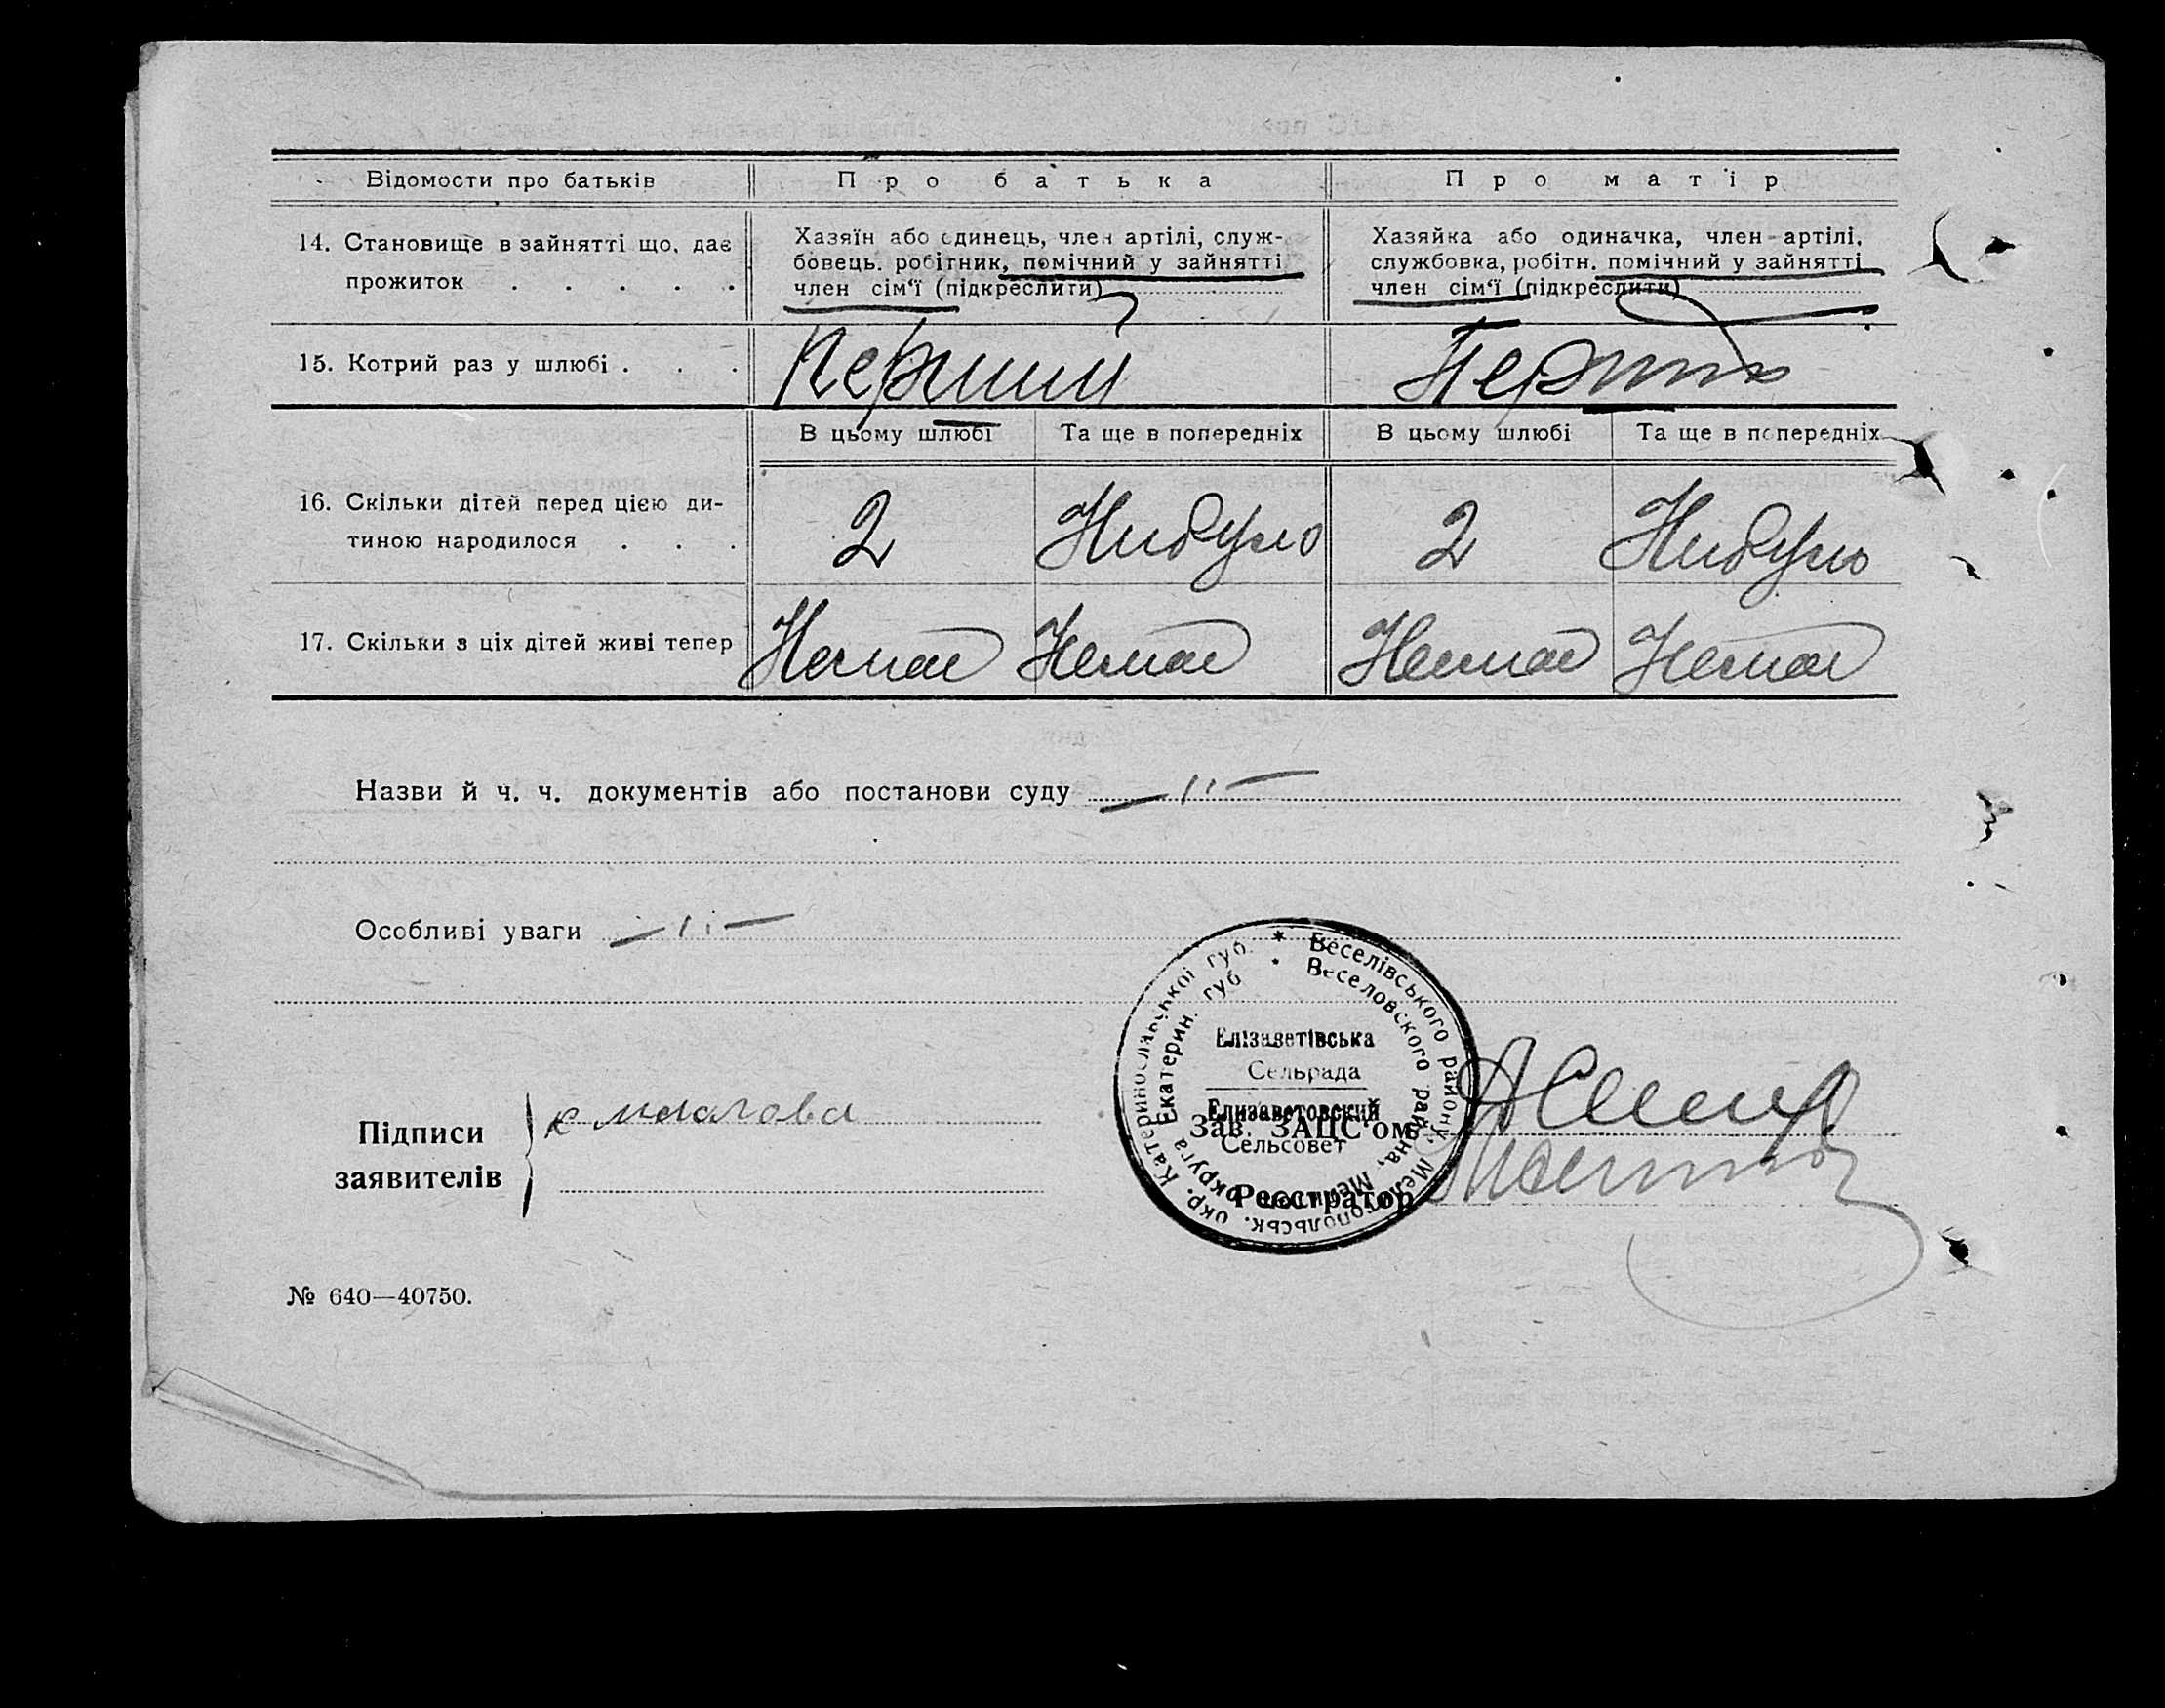 Відомости про батьків
Про батька
Про матір
14. Становище в зайнятті що, дає
прожиток . . . . .
Хазяїн або одинець, член артілі, служ-
бовець. робітник, помічний у зайнятті
член сім'ї (підкреслити)
Хазяйка або одиначка, член артілі,
службовка, робітн. помічний у зайнятті
член сім'ї (підкреслити)
15. Котрий раз у шлюбі . . .
Перший
В цьому шлюбі
Та ще в попередніх
В цьому шлюбі
Та ще в попередніх
16. Скільки дітей перед цією ди-
тиною народилося . . .
2
Нибуло
2
Нибуло
17. Скільки з ціх дітей живі тепер
Немає
Немає
Немає
Немає
Назви й ч. ч. документів або постанови суду —"—
Особливі уваги —"—
Катеринославської губ. * Веселівського району, Мелітопольськ. окр.
Екатерин. губ. * Веселовского района, округа
Елізаветівська
Сельрада
Елизаветовский
Сельсовет
Підписи
заявителів
Зав. ЗАЦС'ом
Реєстратор
№ 640—40750.